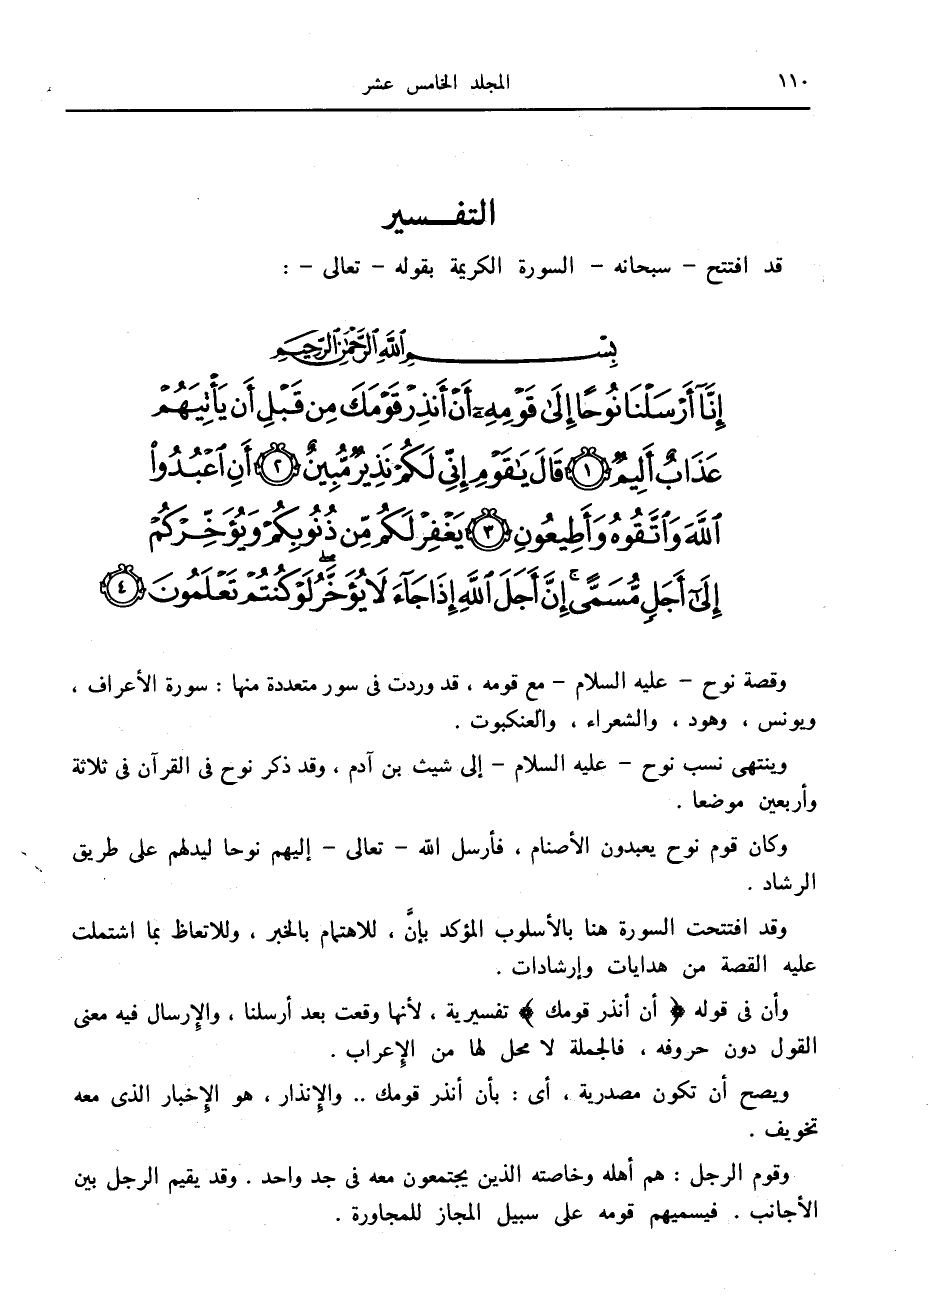 ١١٠
المجلد الخامس عشر
التفـــسير
قد افتتح – سبحانه – السورة الكريمة بقوله – تعالى – :
بِسْمِ اللَّهِ الرَّحْمَٰنِ الرَّحِيمِ
إِنَّآ أَرْسَلْنَا نُوحًا إِلَىٰ قَوْمِهِۦٓ أَنْ أَنذِرْ قَوْمَكَ مِن قَبْلِ أَن يَأْتِيَهُمْ
عَذَابٌ أَلِيمٌ ﴿١﴾ قَالَ يَٰقَوْمِ إِنِّى لَكُمْ نَذِيرٌ مُّبِينٌ ﴿٢﴾ أَنِ ٱعْبُدُوا۟
ٱللَّهَ وَٱتَّقُوهُ وَأَطِيعُونِ ﴿٣﴾ يَغْفِرْ لَكُم مِّن ذُنُوبِكُمْ وَيُؤَخِّرْكُمْ
إِلَىٰٓ أَجَلٍ مُّسَمًّى ۚ إِنَّ أَجَلَ ٱللَّهِ إِذَا جَآءَ لَا يُؤَخَّرُ ۖ لَوْ كُنتُمْ تَعْلَمُونَ ﴿٤﴾
وقصة نوح – عليه السلام – مع قومه ، قد وردت فى سور متعددة منها : سورة الأعراف ،
ويونس ، وهود ، والشعراء ، والعنكبوت .
وينتهى نسب نوح – عليه السلام – إلى شيث بن آدم ، وقد ذكر نوح فى القرآن فى ثلاثة
وأربعين موضعا .
وكان قوم نوح يعبدون الأصنام ، فأرسل الله – تعالى – إليهم نوحا ليدلهم على طريق
الرشاد .
وقد افتتحت السورة هنا بالأسلوب المؤكد بإنَّ ، للاهتمام بالخبر ، وللاتعاظ بما اشتملت
عليه القصة من هدايات وإرشادات .
وأن فى قوله ﴿ أن أنذر قومك ﴾ تفسيرية ، لأنها وقعت بعد أرسلنا ، والإرسال فيه معنى
القول دون حروفه ، فالجملة لا محل لها من الإعراب .
ويصح أن تكون مصدرية ، أى : بأن أنذر قومك .. والإنذار ، هو الإخبار الذى معه
تخويف .
وقوم الرجل : هم أهله وخاصته الذين يجتمعون معه فى جد واحد . وقد يقيم الرجل بين
الأجانب . فيسميهم قومه على سبيل المجاز للمجاورة .